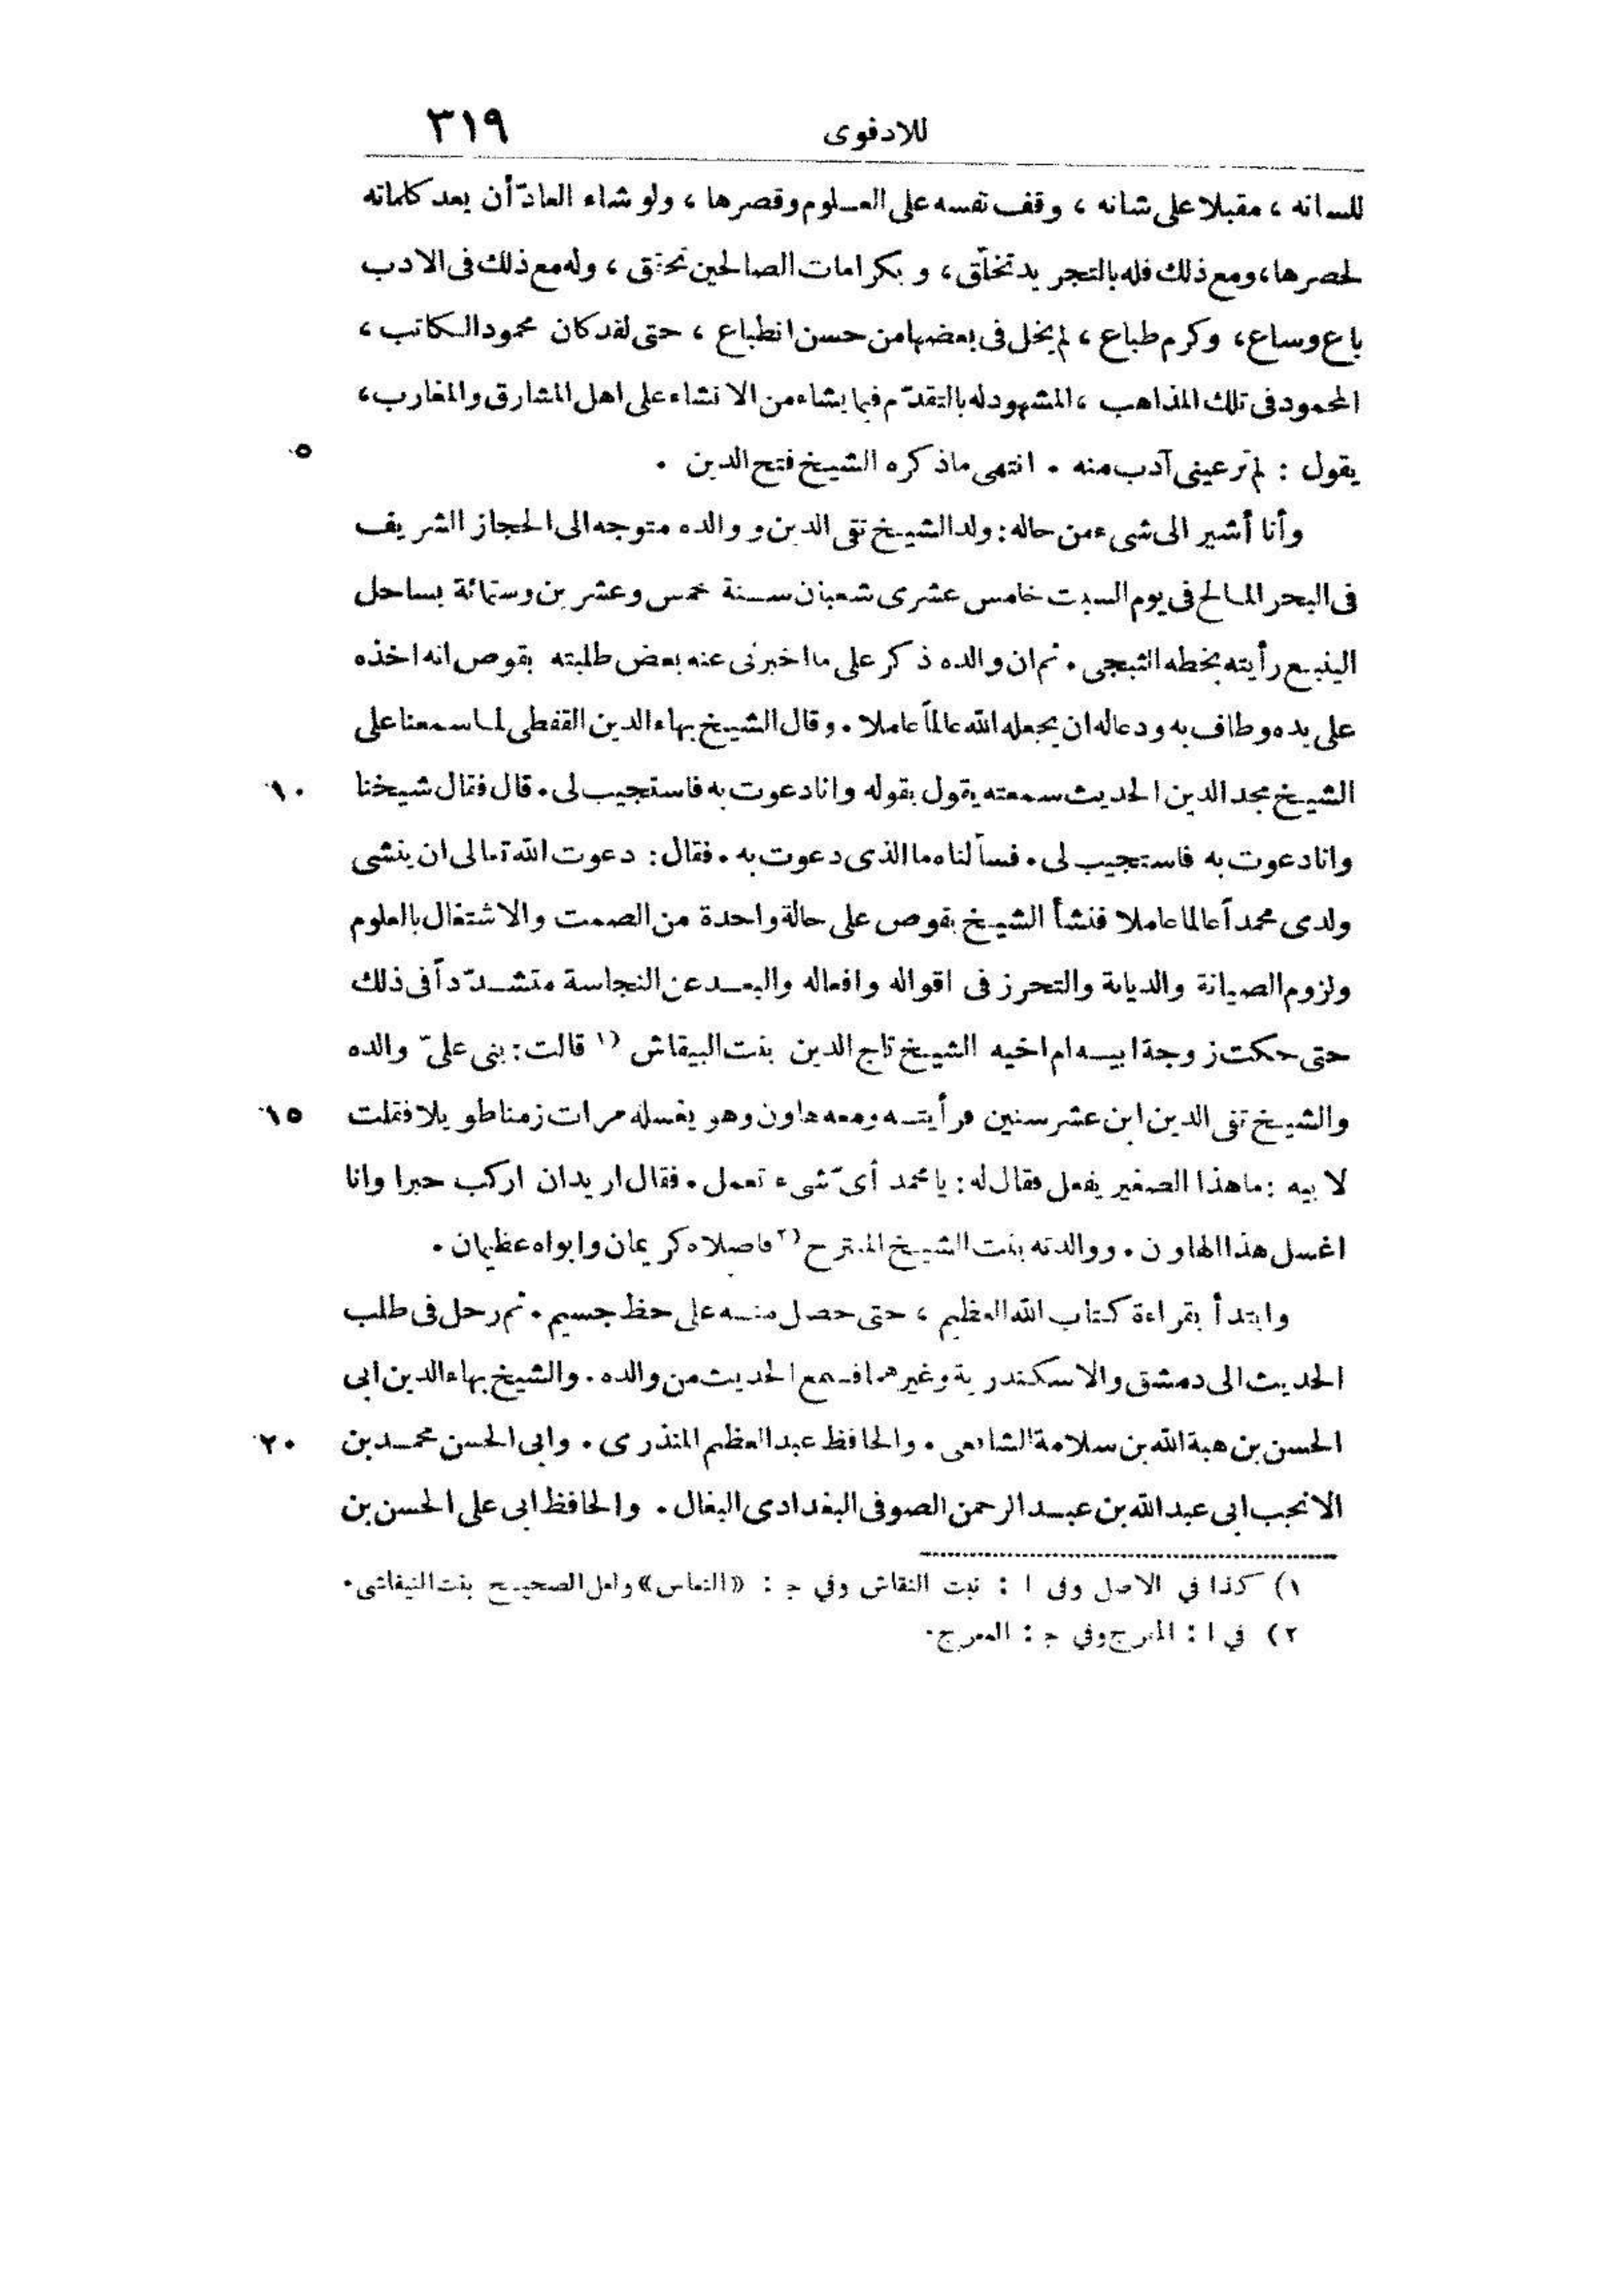 للادفوى ٣١٩
للسانه ، مقبلا على شانه ، وقف نفسه على العلوم وقصرها ، ولو شاء العادّ أن يعد كلماته
لحصرها، ومع ذلك فله بالتجريد تخلّق، و بكرامات الصالحين تحقق ، وله مع ذلك فى الادب
باع وساع، وكرم طباع ، لم يخل فى بعضها من حسن انطباع ، حتى لقد كان محمود الكاتب ،
المحمود فى تلك المذاهب ، المشهود له بالتقدّم فيما يشاء من الانشاء على اهل المشارق والمغارب،
يقول : لم تر عينى آدب منه . انتهى ماذكره الشيخ فتح الدين . ٥
وأنا أشير الى شىء من حاله: ولد الشيخ تقى الدين و والده متوجه الى الحجاز الشريف
فى البحر المالح فى يوم السبت خامس عشرى شعبان سنة خمس وعشرين وستمائة بساحل
الينبع رأيته بخطه الثبجى . ثم ان والده ذكر على ما اخبرنى عنه بعض طلبته بقوص انه اخذه
على يده وطاف به ودعا له ان يجعله الله عالماً عاملا . وقال الشيخ بهاء الدين القفطى لما سمعنا على
الشيخ مجد الدين الحديث سمعته يقول بقوله وانا دعوت به فاستجيب لى . قال فقال شيخنا ١٠
وانا دعوت به فاستجيب لى . فسألناه ما الذى دعوت به . فقال: دعوت الله تعالى ان ينشى
ولدى محمداً عالما عاملا فنشأ الشيخ بقوص على حالة واحدة من الصمت والاشتغال بالعلوم
ولزوم الصيانة والديانة والتحرز فى اقواله وافعاله والبعد عن النجاسة متشدّداً فى ذلك
حتى حكت زوجة ابيه ام اخيه الشيخ تاج الدين بنت البيقاش (١ قالت: بنى علىّ والده
والشيخ تقى الدين ابن عشر سنين فرأيته ومعه هاون وهو يغسله مرات زمنا طويلا فقلت ١٥
لابيه : ماهذا الصغير يفعل فقال له: يا محمد أىّ شىء تعمل . فقال اريد ان اركب حبرا وانا
اغسل هذا الهاون . ووالدته بنت الشيخ المقترح (٢ فاصلاه كريمان وابواه عظيمان .
وابتدأ بقراءة كتاب الله العظيم ، حتى حصل منه على حظ جسيم . ثم رحل فى طلب
الحديث الى دمشق والاسكندرية وغيرهما فسمع الحديث من والده . والشيخ بهاء الدين ابى
الحسن بن هبة الله بن سلامة الشافعى . والحافظ عبد العظيم المنذرى . وابى الحسن محمد بن ٢٠
الانجب ابى عبد الله بن عبد الرحمن الصوفى البغدادى البغال . والحافظ ابى على الحسن بن
١) كذا في الاصل وفى ا : نبت النقاش وفي ج : «النعاس» ولعل الصحيح بنت التيفاشى.
٢) في ا : المفرج وفي ج : المعرج.